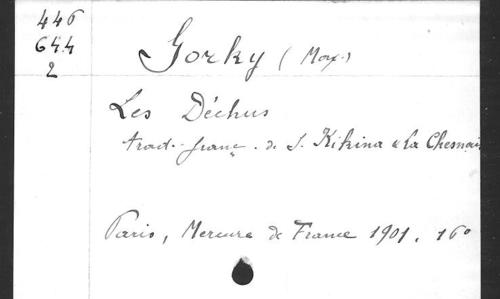 446
644
2
Gorky (Max.)
Les Déchus
trad. franç. de S. Kikina & La Chesnais
Paris, Mercure de France 1901. 16º